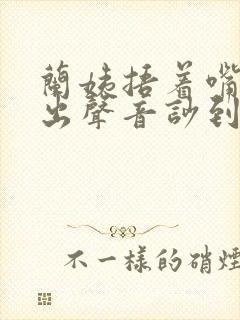 蘭姨捂着嘴
出聲音訬到
不一樣的硝煙